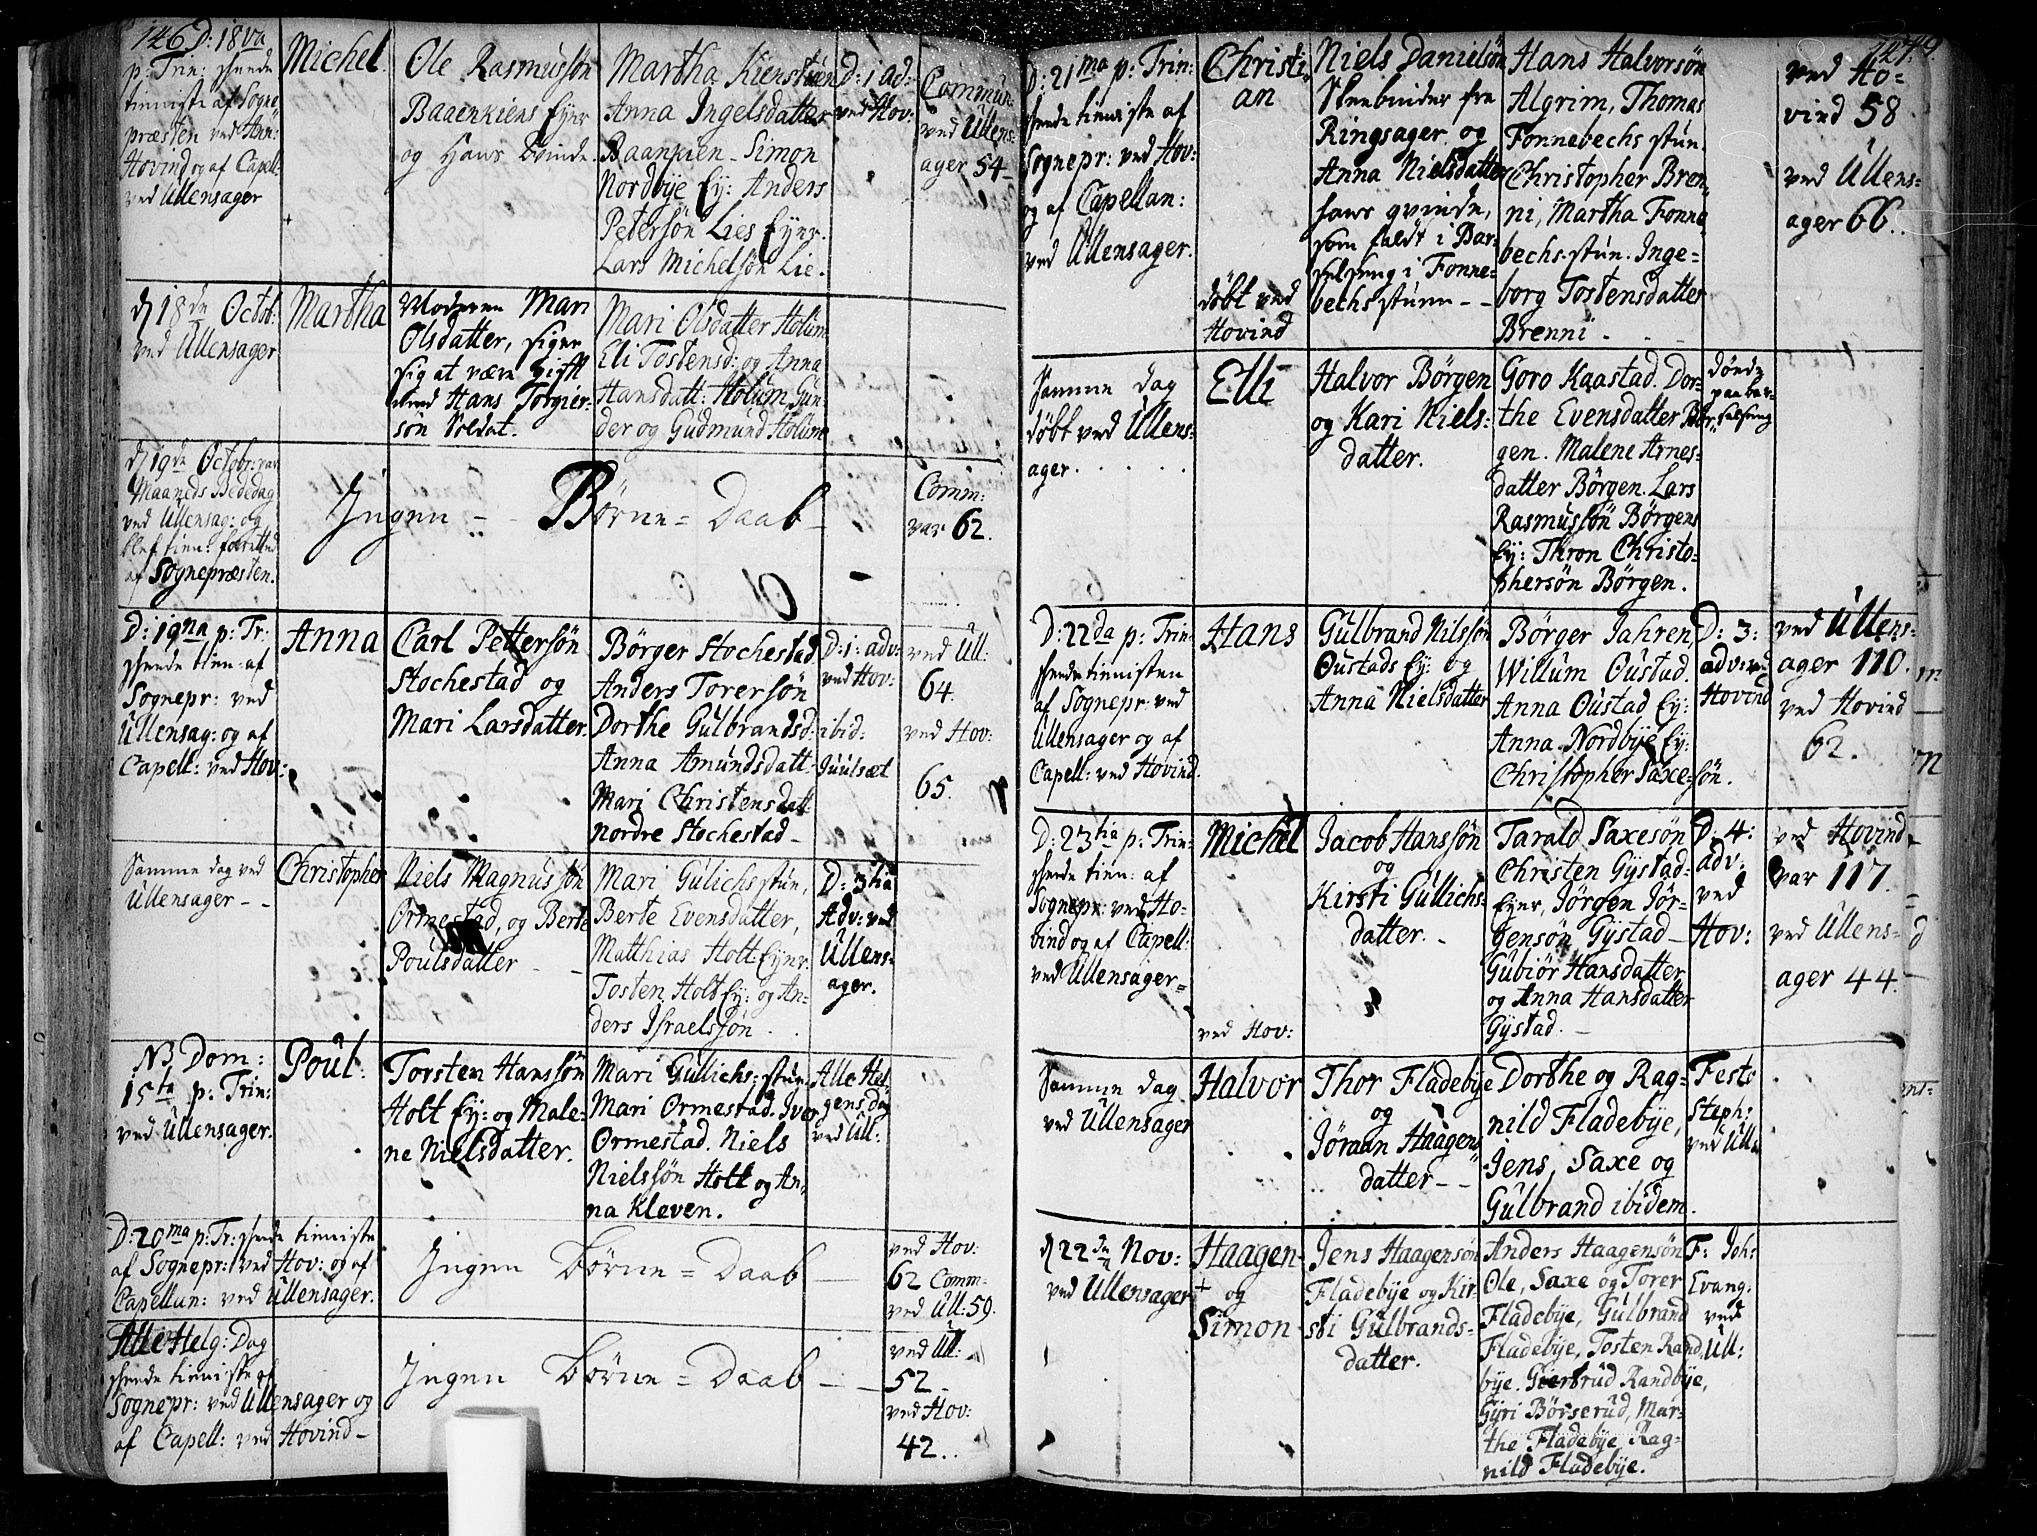 146
D: 18va
p: Trin: skeede
tienniste af Sogne
præsten ved
Hovind og af Capell:
ved Ullensager
Michel.
Ole Rasmussön
Baaenkiens Eyer
og Hans Qvinde
Martha Kienstuen
Anna Ingelsdatter
Baankien - Simon
Nordbÿe Eÿ: Anders
Petersön Lies Eyer.
Lars Michelsön Lie.
D: 1 ad:
ved Hov:
Commun:
ved Ullens-
ager 54-
dj 18de Octob:
ved Ullensager
Martha
Moderen Mari
Olsdatter, siger
sig at være gifft
med Hans Torgier-
sön Soldat.
Mari Olsdatter Holum
Eli Tostensd: og Anna
Hansdatt: Holum Gun-
der og Gudmund Holum
dj 19de Octobr: var
Maaneds Bededag
ved Ullensag: og
blef tien: forretted
af Sognepræsten.
Ingen - - Börne = Daab -
Comm:
var 62.
D: 19na p: Tr:
skeede tien: af
Sognepr: ved
Ullensag: og af
Capell: ved Hov:
Anna
Carl Pettersön
Stochestad og
Mari Larsdatter.
Börger Stochestad
Anders Torersön
Dorthe Gulbrandsd.
Anna Amundsdatt.
Mari Christensdatt
Nordre Stochestad -
D: 1: adv:
ved Hov:
ibid:
Juulsæt
ved Ull:
64.
ved Hov:
65.
Samme dag ved
Ullensager - -
Christopher
Niels Magnussön
Ormestad, og Berte
Poulsdatter - -
Mari Gulichsstun,
Berte Evensdatter,
Matthias Holt Eyer.
Tosten Holt Eÿ: og An-
ders Israelssön.
D: 3tia
Adv: ved
Ullens-
ager.
NB Dom:
15ta p: Trin:
ved Ullensager.
Poul.
Torsten Hanssön
Holt Eÿ: og Male-
ne Nielsdatter.
Mari Gullichs: stun
Mari Ormestad. Iver
Ormestad. Niels
Nielssön Holt og An-
na Kleven.
Alle Hel-
gens dag
ved Ull:
D: 20ma p: Tr: skeede tienniste
af Sognepr: ved Hov: og af
Capellan: ved Ullensager.
Ingen Börne = Daab -
ved Hov:
62 Comm-
ved Ull: 59.
Alle Helg: Dag
skeede tienniste af
Sognepr: ved Ullensager og
af Capell: ved Hovind -
Ingen Börne = Daab - -
ved Ull:
52 -
ved Hov:
42..
D: 21ma p: Trin:
skeede tienniste af
Sognepr: ved Hov:
og af Capellan:
ved Ullensager.
Christi-
an
döbt ved
Hovind
Niels Danielsön
Skeebinder fra
Ringsager og
Anna Nielsdatter
hans qvinde,
som faldt i Bar-
selseng i Fonne-
bechsstuen - -
Hans Halvorsön
Algrim, Thomas
Fonnebechs stun.
Christopher Bren-
ni, Martha Fonne
bechs-stun. Inge-
borg Tostensdatter
Brenni.
ved Ho-
vind 58
ved Ullens-
ager 66.
Samme dag
döbt ved Ullens-
ager.
Elli
Halvor Börgen
og Kari Niels-
datter.
Goro Kaastad. Dor-
the Evensdatter Bör-
gen. Malene Arnes-
datter Börgen. Lars
Rasmussön Börgens
Eÿ: Thron Christo-
phersön Börgen.
döde
paa bar-
selseng
D: 22da p: Trin-
skeede tiennisten
af Sognepr: ved
Ullensager og af
Capell: ved Hovind.
Hans
Gulbrand Nilssön
Oustads Eÿ: og
Anna Nielsdatter
Börger Jahren,
Willum Oustad.
Anna Oustad Eÿ:
Anna Nordbÿe Eÿ:
Christopher Saxe-sön.
D: 3:
adv: ved
Hovind
ved Ullens-
ager 110.
ved Hovind
62.
D: 23tia p: Trin-
skeede tien: af
Sognepr: ved Ho-
vind og af Capell:
ved Ullensager=
Michel
ved Hov:
Jacob Hanssön
og
Kirsti Gullichs-
datter. -
Tarald Saxesön
Christen Gÿstad-
Eyer, Jörgen Jör-
gensön Gÿstad-
Gubiör Hansdatter
og Anna Hansdatter
Gÿstad. -
D: 4:
adv:
ved
Hov:
ved Hovind
var 117.
ved Ullens-
ager 44.
Samme dag
ved Ullensager
Halvor
Thor Fladebÿe
og
Jöraan Haagens-
datter - -
Dorthe og Rag-
nild Fladebÿe,
Jens, Saxe og
Gulbrand ibidem.
Festo
Steph:
ved Ull:
dj 22de Nov:
ved Ullensager
Haagen-
+ og
Simon-
Jens Haagensön
Fladebÿe og Kir-
sti Gulbrands-
datter.
Anders Haagensön
Ole, Saxe og Torer
Fladebÿe, Gulbrand
Fladebÿe, Tosten Rand
bÿe. Giertrud Randbÿe,
Gÿri Börserud, Mar-
the Fladebÿe, Rag-
nild Fladebÿe.
F: Joh:
Evang:
ved
Ull: